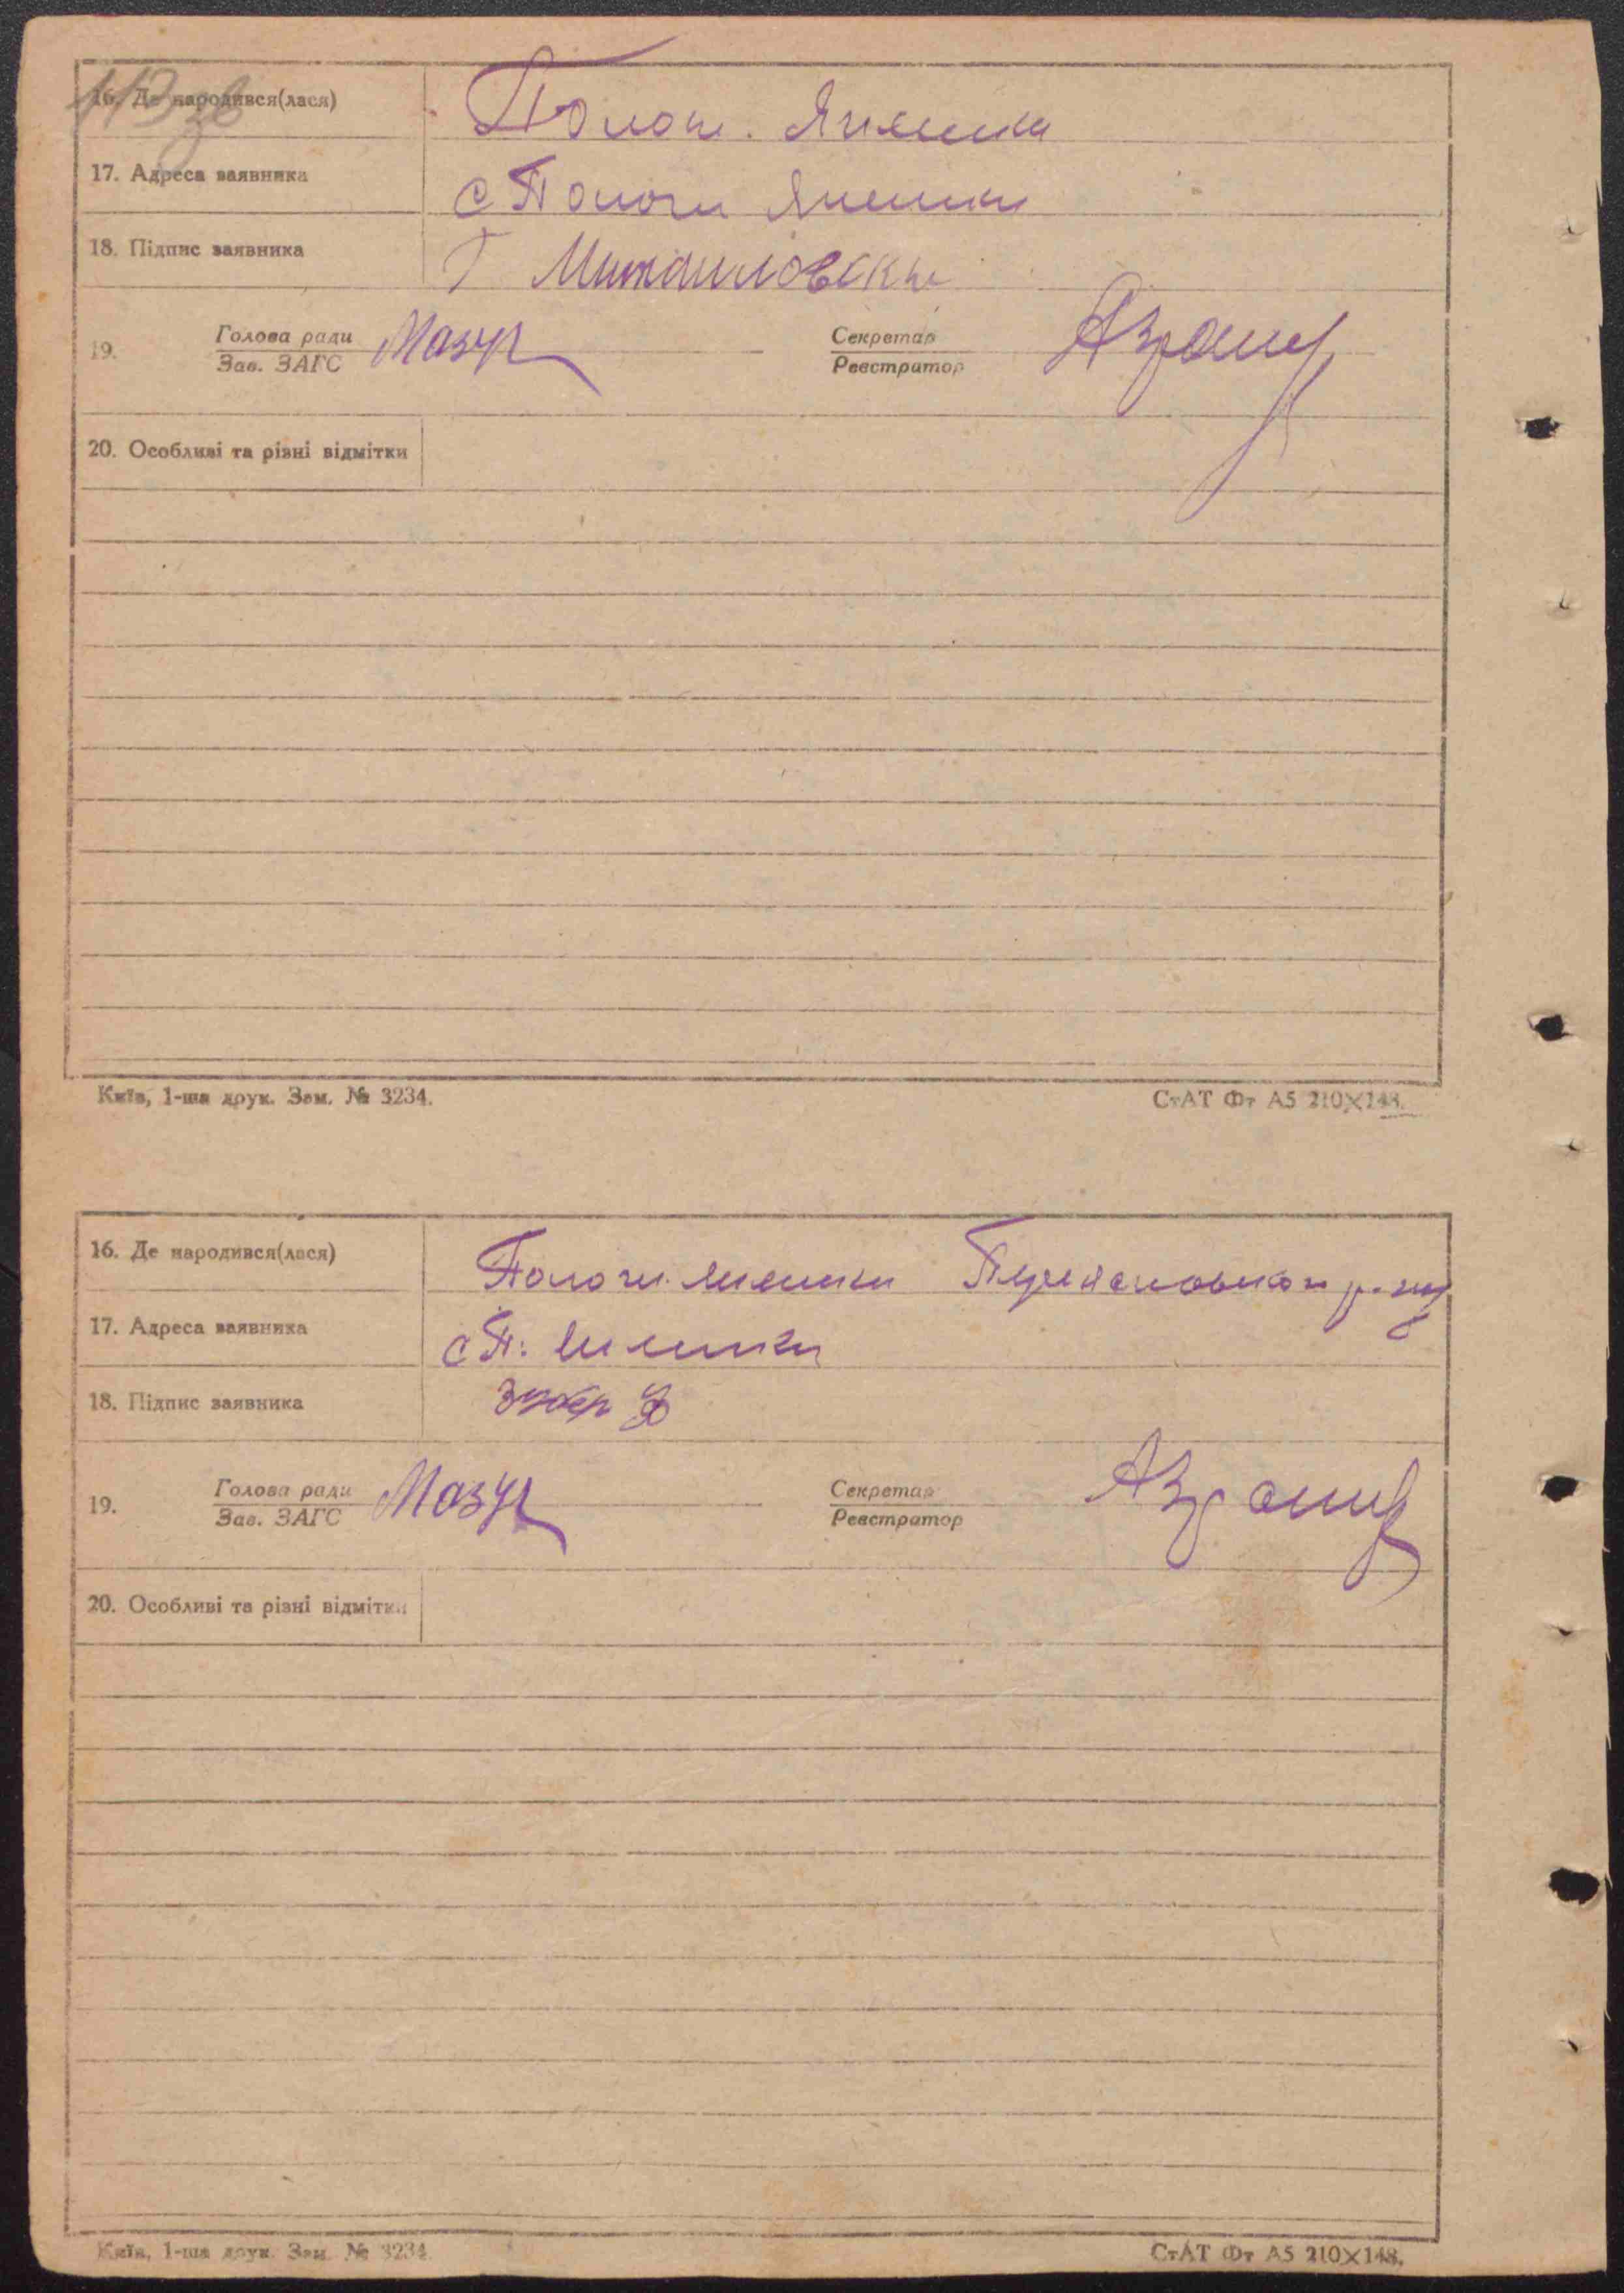 16. Де народився(лася) Полог. Яненки
17. Адреса заявника с Пологи Яненки
18. Підпис заявника Г Михаиловски
19. Голова ради Мазур Секретар
Зав. ЗАГС Реєстратор
20. Особливі та різні відмітки
Київ, 1-ша друк. Зам. № 3234. СтАТ Фт А5 210×148.
16. Де народився(лася) Пологи Яненки р-ну
17. Адреса заявника с П. Яненки
18. Підпис заявника
19. Голова ради Мазур Секретар
Зав. ЗАГС Реєстратор
20. Особливі та різні відмітки
Київ, 1-ша друк. Зам. № 3234. СтАТ Фт А5 210×148.